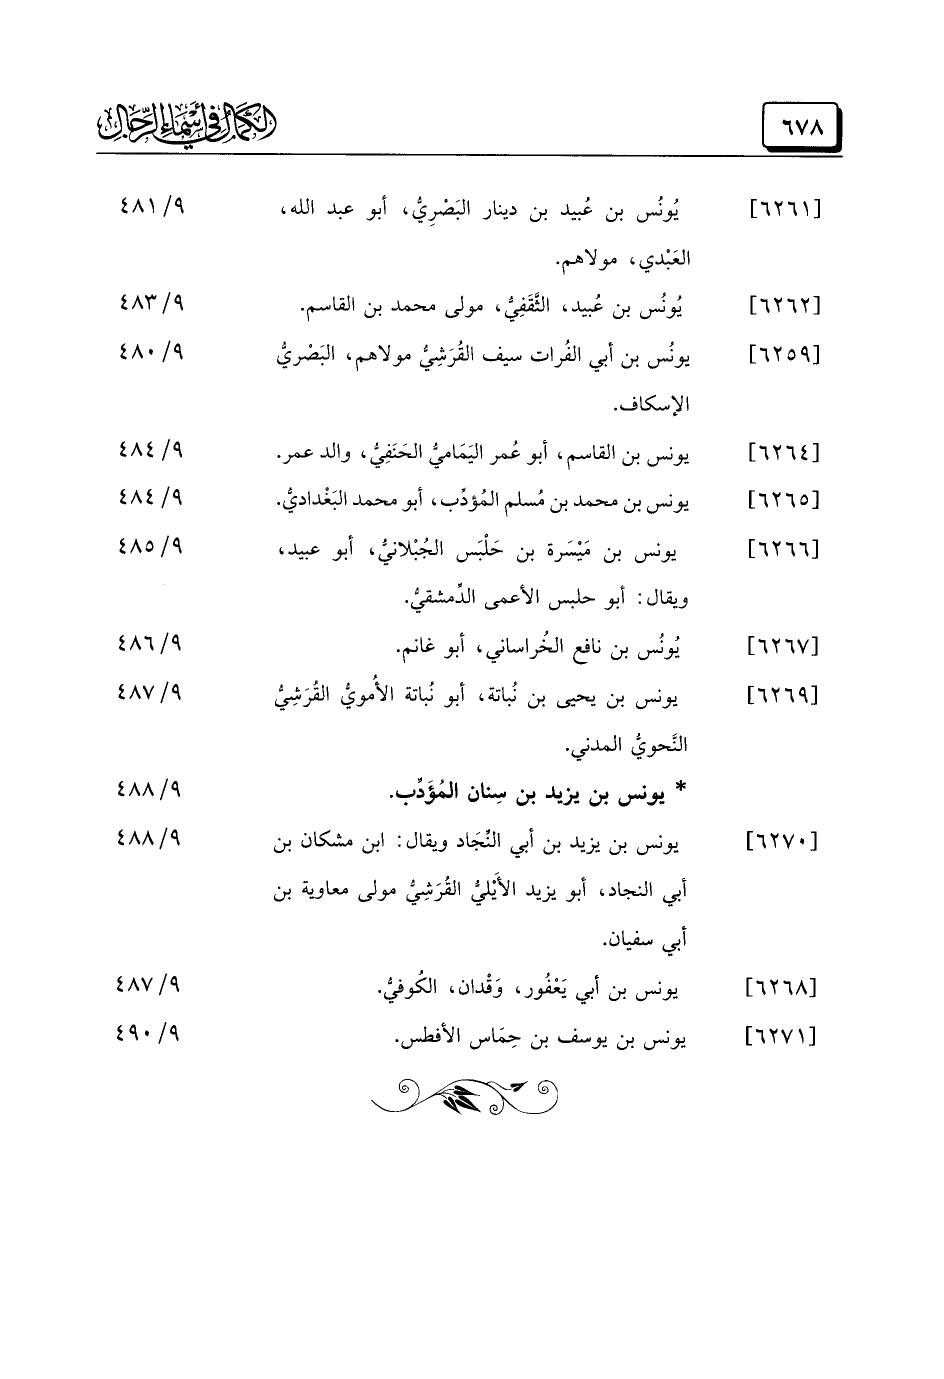 ٦٧٨ الكمال في أسماء الرجال
[٦٢٦١] يُونُس بن عُبيد بن دينار البَصْرِيُّ، أبو عبد الله، ٤٨١/٩
العَبْدي، مولاهم.
[٦٢٦٢] يُونُس بن عُبيد، الثَّقَفِيُّ، مولى محمد بن القاسم. ٤٨٣/٩
[٦٢٥٩] يونُس بن أبي الفُرات سيف القُرَشِيُّ مولاهم، البَصْريُّ ٤٨٠/٩
الإسكاف.
[٦٢٦٤] يونس بن القاسم، أبو عُمر اليَمَاميُّ الحَنَفِيُّ، والد عمر. ٤٨٤/٩
[٦٢٦٥] يونس بن محمد بن مُسلم المُؤدِّب، أبو محمد البَغْداديُّ. ٤٨٤/٩
[٦٢٦٦] يونس بن مَيْسَرة بن حَلْبَس الجُبْلانيُّ، أبو عبيد، ٤٨٥/٩
ويقال: أبو حلبس الأعمى الدِّمشقيُّ.
[٦٢٦٧] يُونُس بن نافع الخُراساني، أبو غانم. ٤٨٦/٩
[٦٢٦٩] يونس بن يحيى بن نُباتة، أبو نُباتة الأُمويُّ القُرَشِيُّ ٤٨٧/٩
النَّحويُّ المدني.
* يونس بن يزيد بن سِنان المُؤَدِّب. ٤٨٨/٩
[٦٢٧٠] يونس بن يزيد بن أبي النِّجَاد ويقال: ابن مشكان بن ٤٨٨/٩
أبي النجاد، أبو يزيد الأَيْليُّ القُرَشِيُّ مولى معاوية بن
أبي سفيان.
[٦٢٦٨] يونس بن أبي يَعْفُور، وَقْدان، الكُوفيُّ. ٤٨٧/٩
[٦٢٧١] يونس بن يوسف بن حِمَاس الأفطس. ٤٩٠/٩